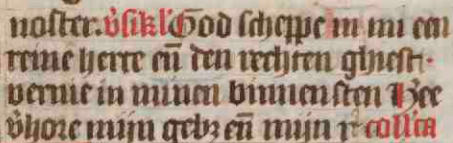 noster. v̾sikl̾ God scheppe in mi een
reine herte en̄ den rechten gheest·
vernie in minen binnensten Hee
v̾hore mijn gebꝫ en̄ mijn r̾ collcā